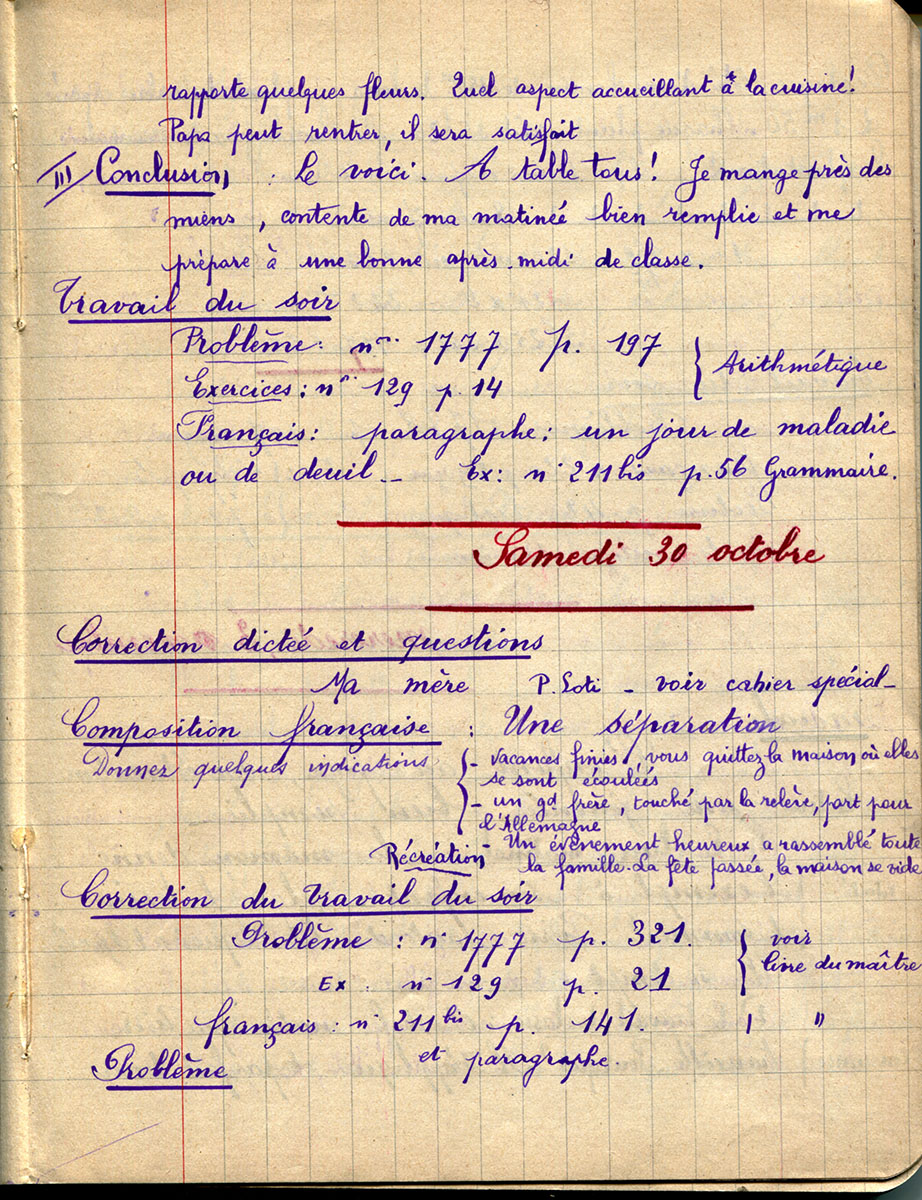 rapporte quelques fleurs. Quel aspect accueillant à la cuisine!
Papa peut rentrer, il sera satisfait
III/ Conclusion : Le voici. A table tous! Je mange près des
miens, contente de ma matineé bien remplie et me
prépare à une bonne après-midi de classe.
Travail du soir
Problème: n° 1777 p. 197
Exercices: n° 129 p. 14 } Arithmétique
Français: paragraphe: un jour de maladie
ou de deuil — Ex: n° 211 bis p. 56 Grammaire.
Samedi 30 octobre
Correction dicteé et questions
Ma mère P. Loti - voir cahier spécial -
Composition française : Une séparation
Donnez quelques indications { - vacances finies, vous quittez la maison où elles
se sont écoulées
- un gd frère, touché par la relève, part pour
l'Allemagne
Récréation - Un évènement heureux a rassemblé toute
la famille. La fête passée, la maison se vide
Correction du travail du soir
Problème : n° 1777 p. 321. } voir
livre du maître
Ex: n° 129 p. 21
français: n° 211 bis p. 141. " "
et paragraphe.
Problème